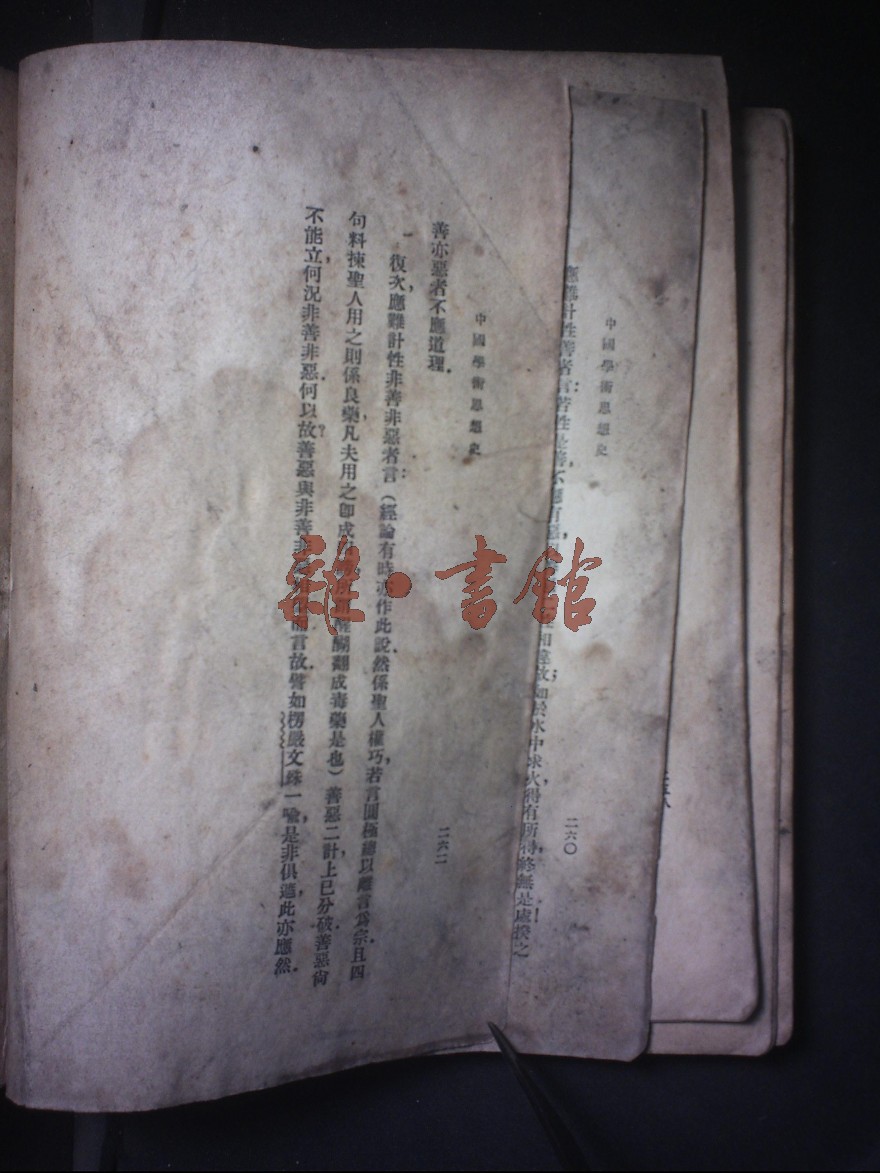 中國學術思想史
二六〇
應難計性善者言若性是善,不應有惡
相違故;如於水中求火得有所得,終無是處!揆之
中國學術思想史
二六二
善亦惡者不應道理.
復次,應難計性非善非惡者言:(經論有時亦作此說.然係聖人權巧,若言圓極總以離言爲宗.且四
句料揀聖人用之則係良藥,凡夫用之卽成
醐翻成毒藥是也)善惡二計,上已分破.善惡尙
不能立,何況非善非惡.何以故?善惡與非善非
而言故.譬如楞嚴文殊一喻,是非俱遣,此亦應然.
雜·書館